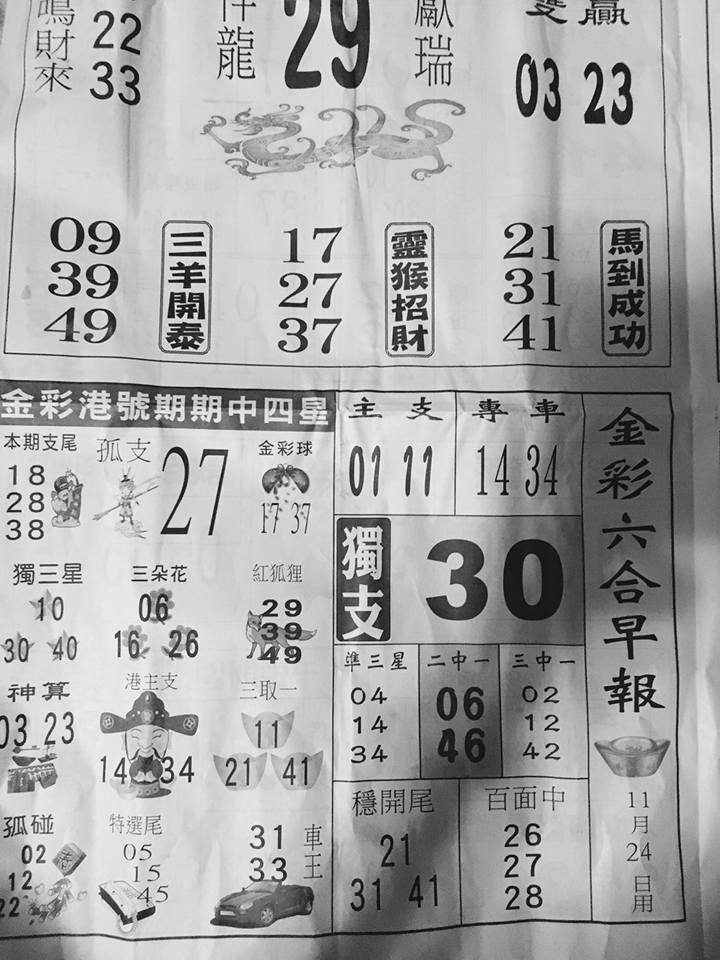 鳴財來
22
33
祥龍
29
獻瑞
雙贏
03 23
09
39
49
三羊開泰
17
27
37
靈猴招財
21
31
41
馬到成功
金彩港號期期中四星
本期支尾
18
28
38
孤支
27
金彩球
17 37
獨三星
10
30 40
三朵花
06
16 26
紅狐狸
29
39
49
神算
03 23
港主支
14 34
三取一
11
21 41
孤碰
02
12
22
特選尾
05
15
45
31
33
車王
主支
01 11
專車
14 34
獨支
30
準三星
04
14
34
二中一
06
46
三中一
02
12
42
穩開尾
21
31 41
百面中
26
27
28
金彩六合早報
11月24日用